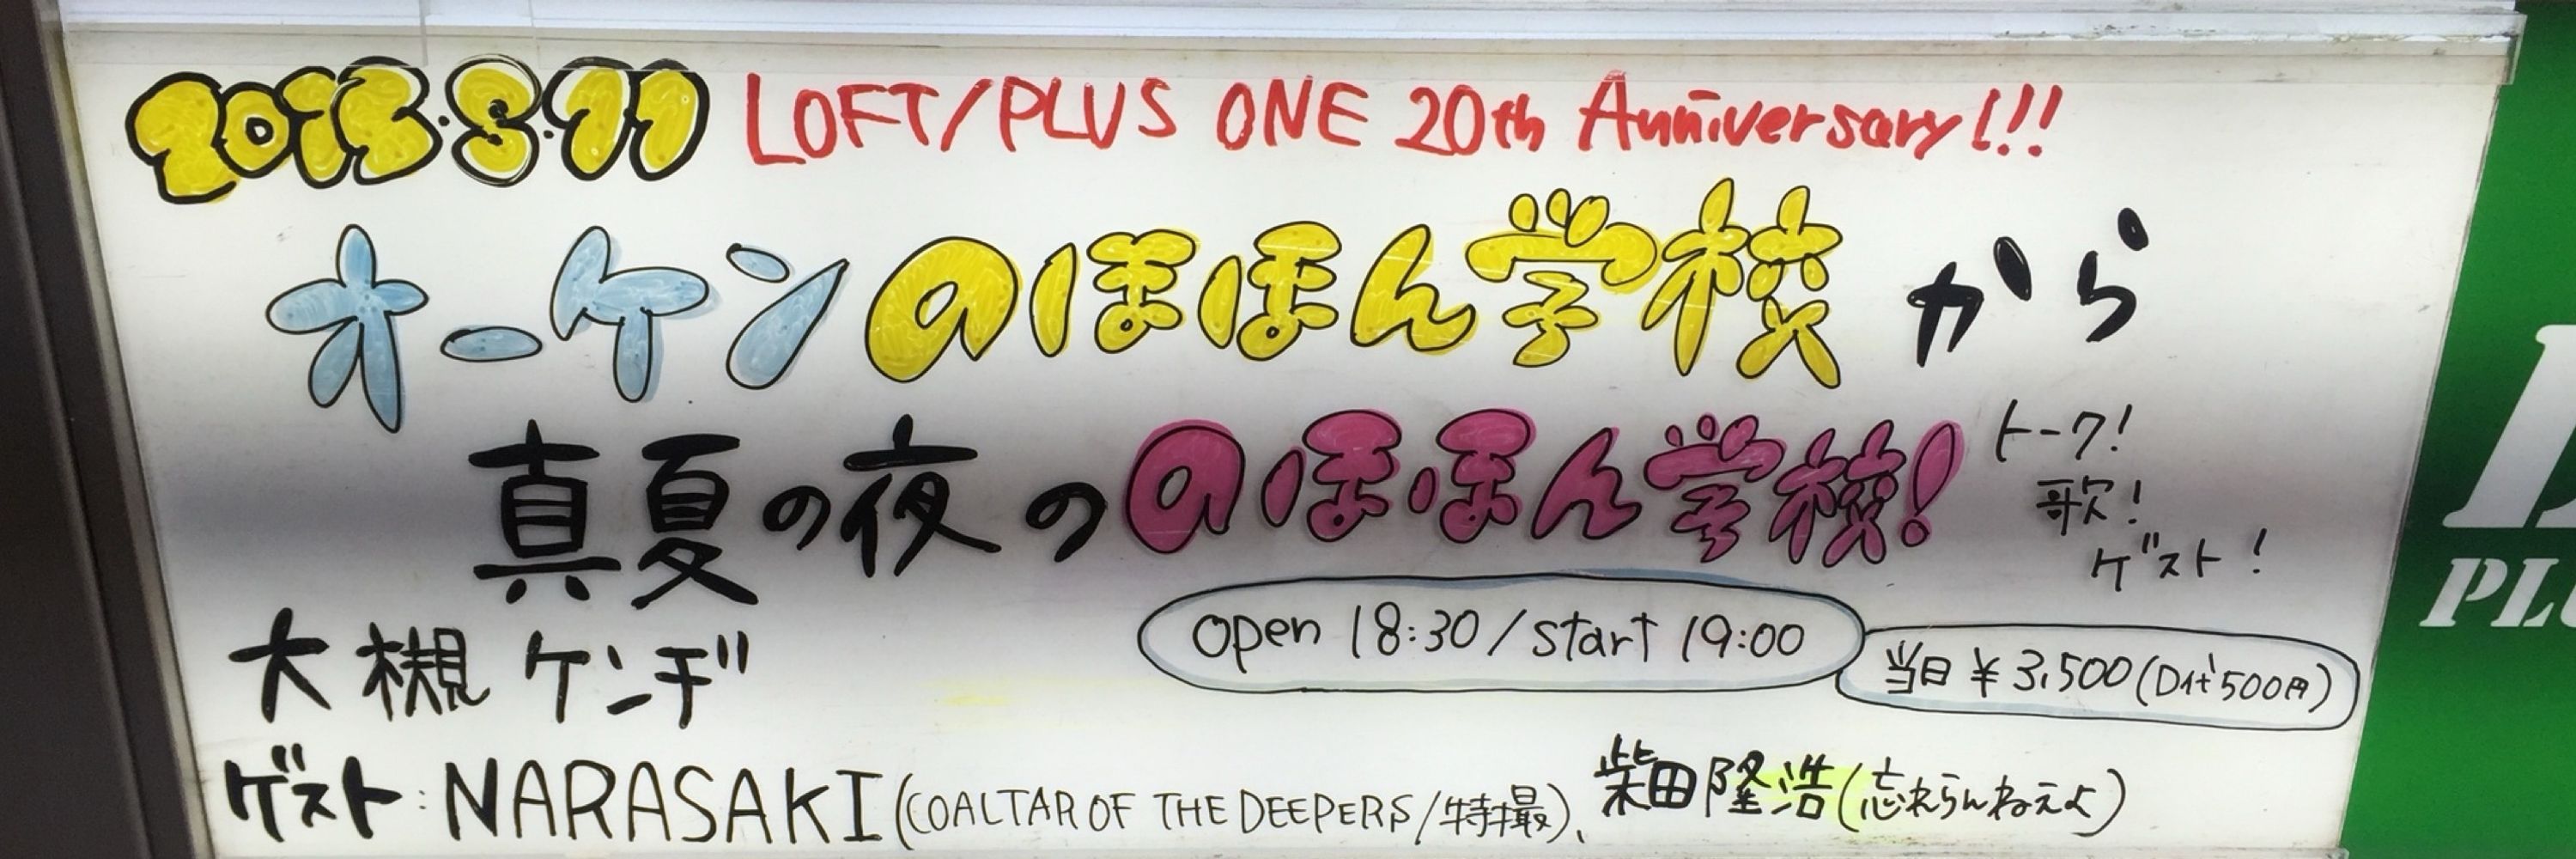 2015.8.11 LOFT/PLUS ONE 20th Anniversary!!!
オーケンのほほん学校から
真夏の夜ののほほん学校!
トーク!
歌!
ゲスト!
大槻ケンヂ
open 18:30/start 19:00
当日¥3,500(D付500円)
ゲスト:NARASAKI(COALTAR OF THE DEEPERS/特撮)、柴田隆浩(忘れらんねえよ)
PL